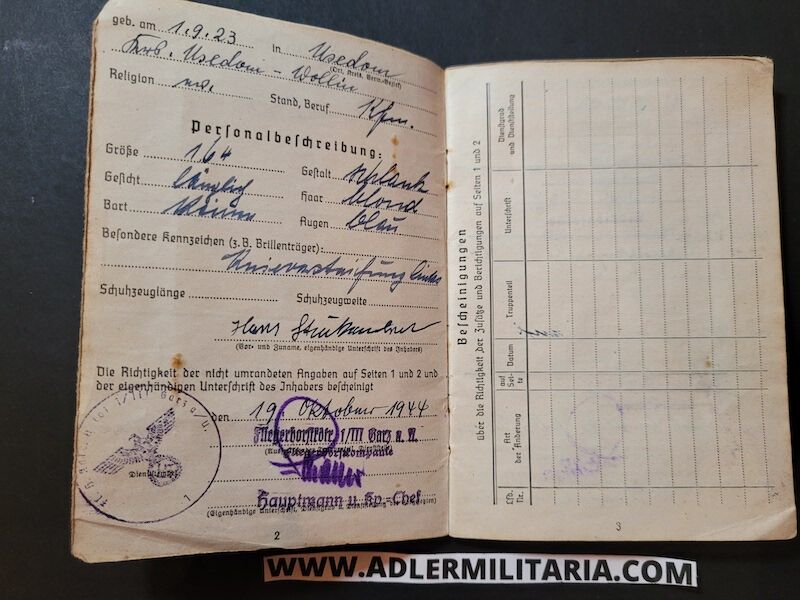 geb. am 1.9.23 in Usedom
(Ort, Kreis, Verw.-Bezirk)
Krs. Usedom - Wollin
Religion ev. Stand, Beruf Kfm.
Personalbeschreibung:
Größe 164 Gestalt schlank
Gesicht länglich Haar blond
Bart keinen Augen blau
Besondere Kennzeichen (z.B. Brillenträger):
Knieversteifung links
Schuhzeuglänge Schuhzeugweite
Hans
(Vor- und Zuname, eigenhändige Unterschrift des Inhabers)
Die Richtigkeit der nicht umrandeten Angaben auf Seiten 1 und 2 und
der eigenhändigen Unterschrift des Inhabers bescheinigt
den 19. Oktober 1944
Fliegerhorstkdtr. 1/III Garz a. U.
Fliegerhorstkompanie
Hauptmann u. Kp.-Chef
(Eigenhändige Unterschrift, Dienstgrad u. Dienststellung des
Dienstsiegel
1
2
Bescheinigungen
über die Richtigkeit der Zusätze und Berichtigungen auf Seiten 1 und 2
Lfd. Nr.
Art der Änderung
auf Sei-te
Datum
Truppenteil
Unterschrift
Dienstgrad und Dienststellung
3
WWW.ADLERMILITARIA.COM